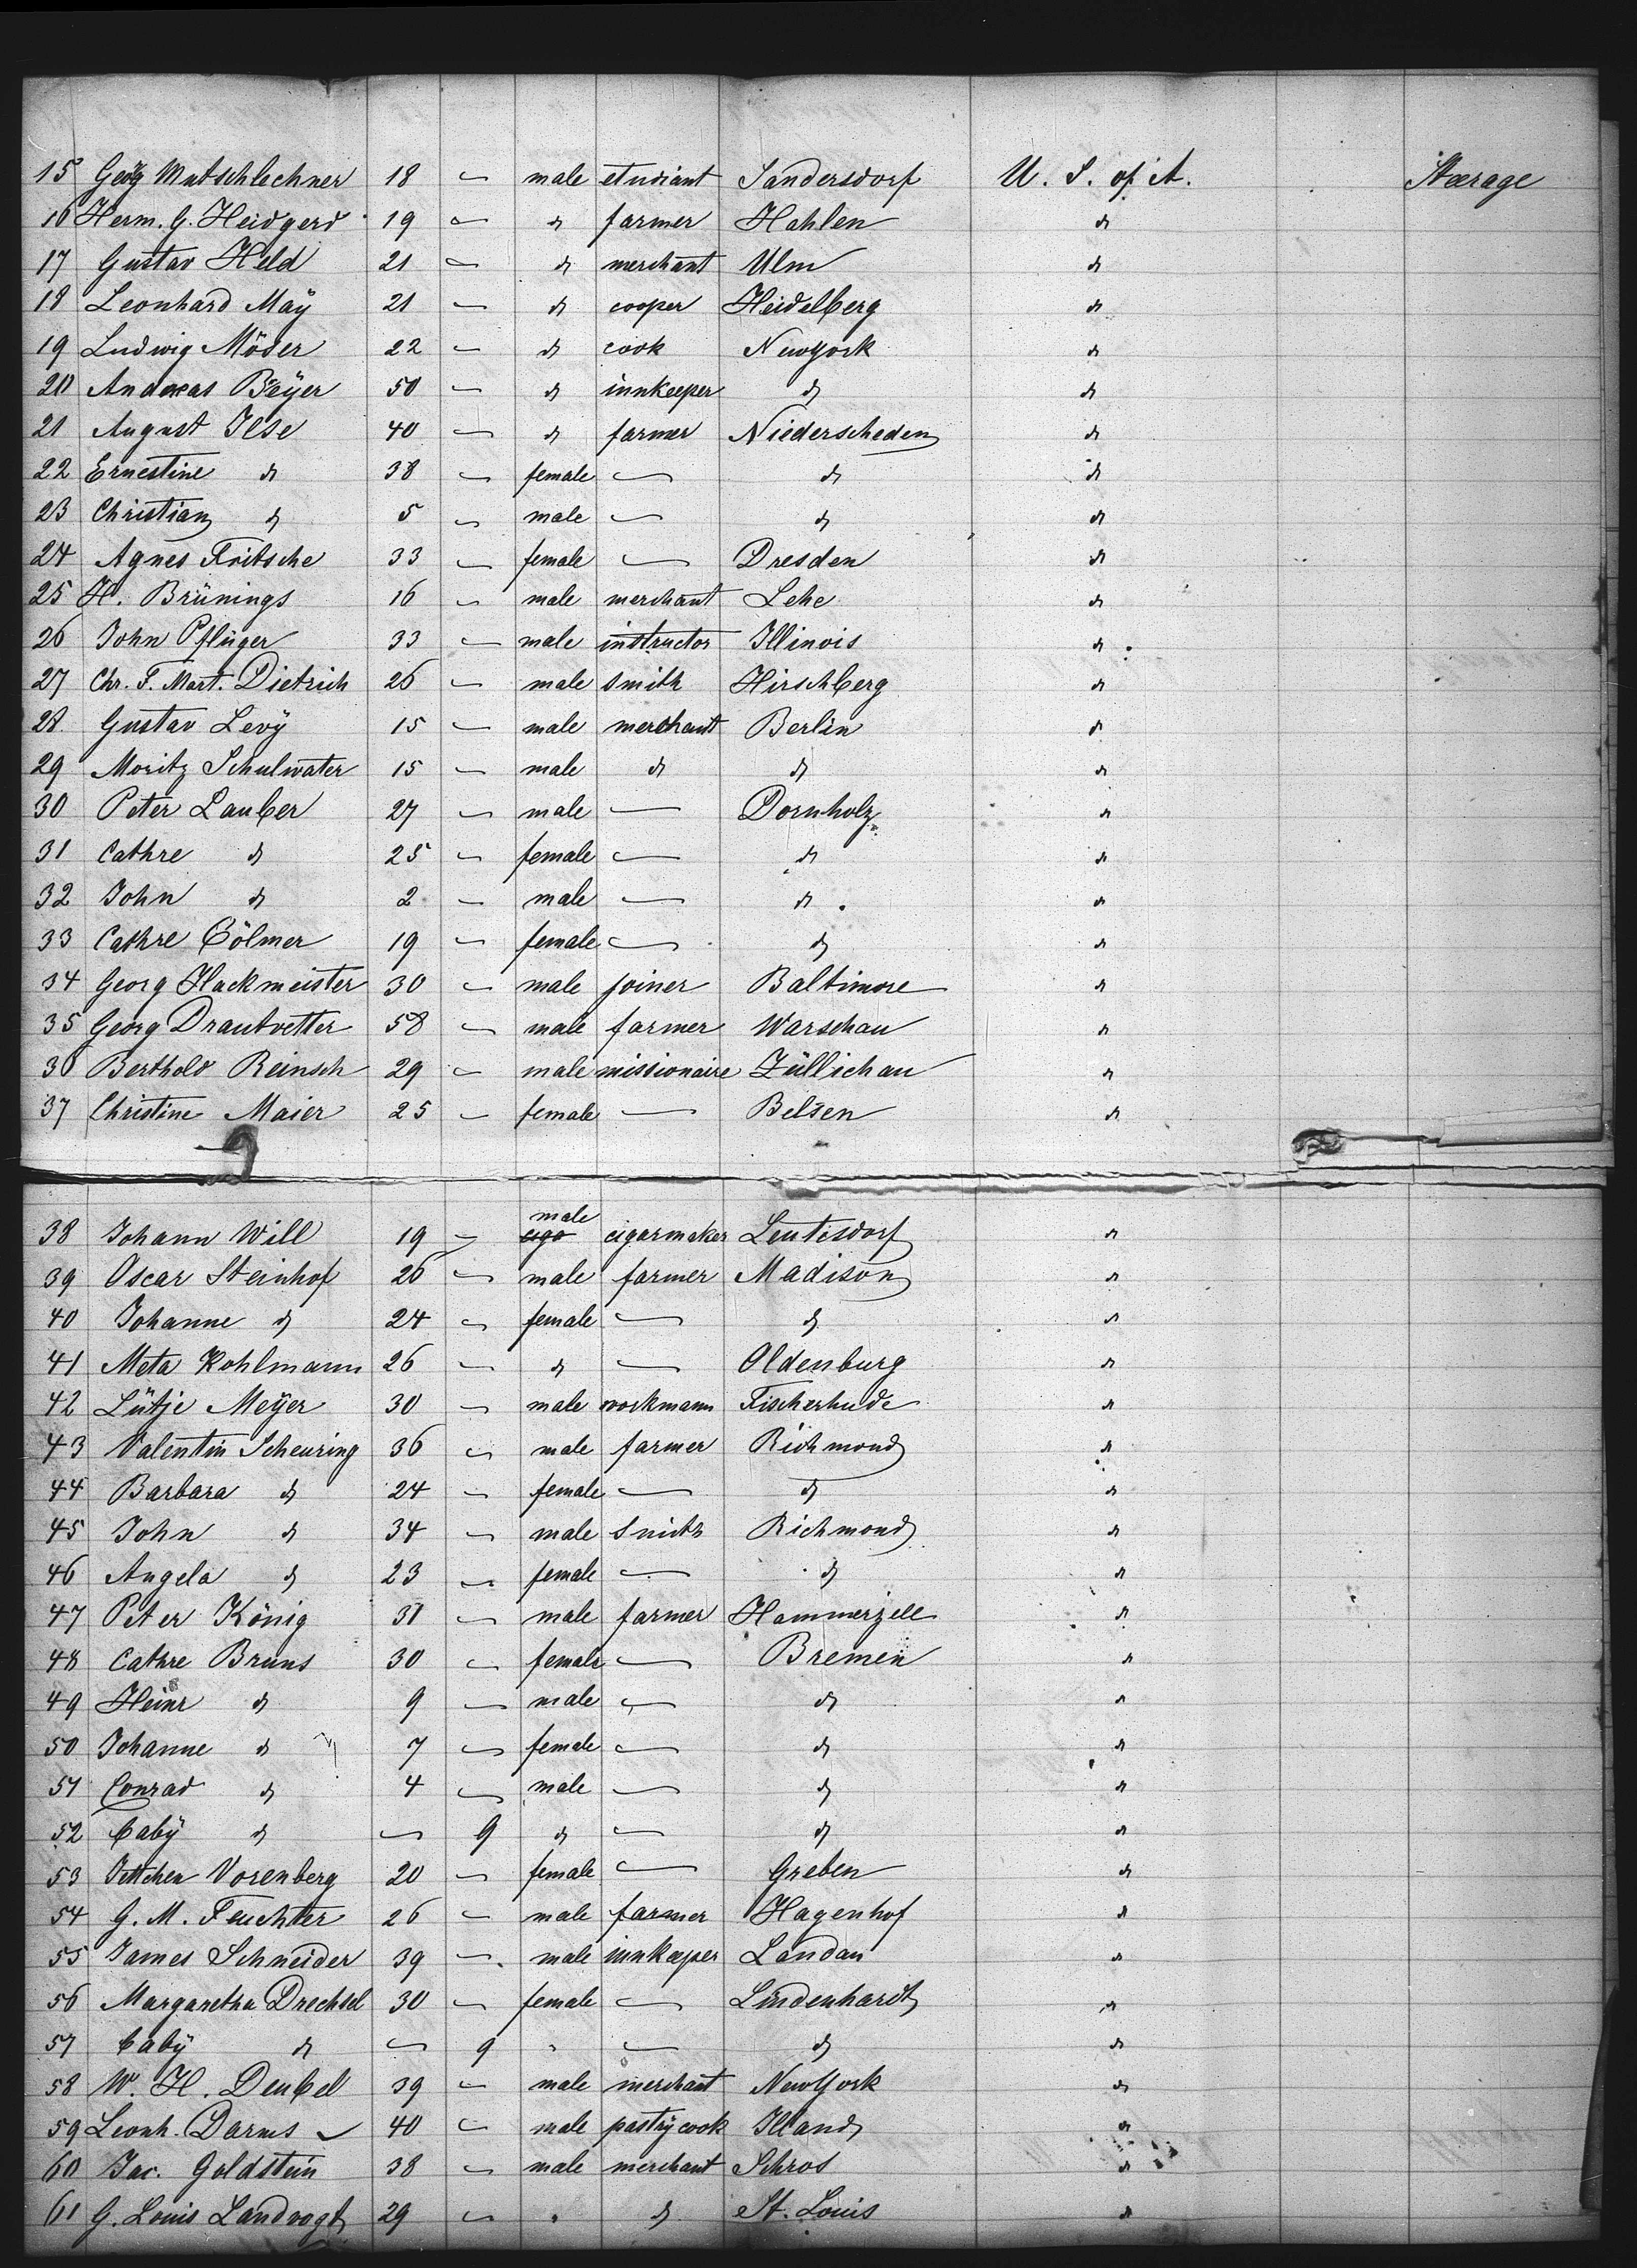 15 Georg Mutschlechner 18 — male etudiant Sandersdorf U. S. of A. Steerage
16 Herm. G. Heidgerd 19 — d farmer Hahlen d
17 Gustav Held 21 — d merchant Ulm d
18 Leonhard Maÿ 21 — d cooper Heidelberg d
19 Ludwig Möser 22 — d cook NewYork d
20 Andreas Beÿer 50 — d innkeeper d d
21 August Ilse 40 — d farmer Niederscheden d
22 Ernestine d 38 — female — d d
23 Christian d 5 — male — d d
24 Agnes Fritsche 33 — female — Dresden d
25 H. Brünings 16 — male merchant Lehe d
26 John Pflüger 33 — male instructor Illinois d
27 Chr. F. Mart. Dietrich 26 — male smith Hirschberg d
28 Gustav Levÿ 15 — male merchant Berlin d
29 Moritz Schulvater 15 — male d d d
30 Peter Lauber 27 — male — Dornholz d
31 Cathre d 25 — female — d d
32 John d 2 — male — d d
33 Cathre Cölmer 19 — female — d d
34 Georg Hackmeister 30 — male joiner Baltimore d
35 Georg Drautvetter 58 — male farmer Warschau d
36 Berthold Reinsch 29 — male missionaire Züllichau d
37 Christine Maier 25 — female — Belsen d
38 Johann Will 19 — male cigarmaker Leutisdorf d
39 Oscar Steinhof 26 — male farmer Madison d
40 Johanne d 24 — female — d d
41 Meta Kohlmann 26 — d — Oldenburg d
42 Lütje Meÿer 30 — male workmann Fischerhude d
43 Valentin Scheuring 36 — male farmer Richmond d
44 Barbara d 24 — female — d d
45 John d 34 — male smith Richmond d
46 Angela d 23 — female — d d
47 Peter König 31 — male farmer Hammerzell d
48 Cathre Bruns 30 — female — Bremen d
49 Heinr d 9 — male — d d
50 Johanne d 7 — female — d d
51 Conrad d 4 — male — d d
52 babÿ d — 9 d — d d
53 Jettchen Vorenberg 20 — female — Greben d
54 G. M. Feuchter 26 — male farmer Hagenhof d
55 James Schneider 39 — male innkeeper Landau d
56 Margaretha Drechsel 30 — female — Lindenhardt d
57 babÿ d — 9 " — d d
58 W. H. Deubel 39 — male merchant NewYork d
59 Leonh. Darms 40 — male pastrÿcook Illand d
60 Jac. Goldstein 38 — male merchant Schros d
61 G. Louis Landvogt 29 — " d St. Louis d